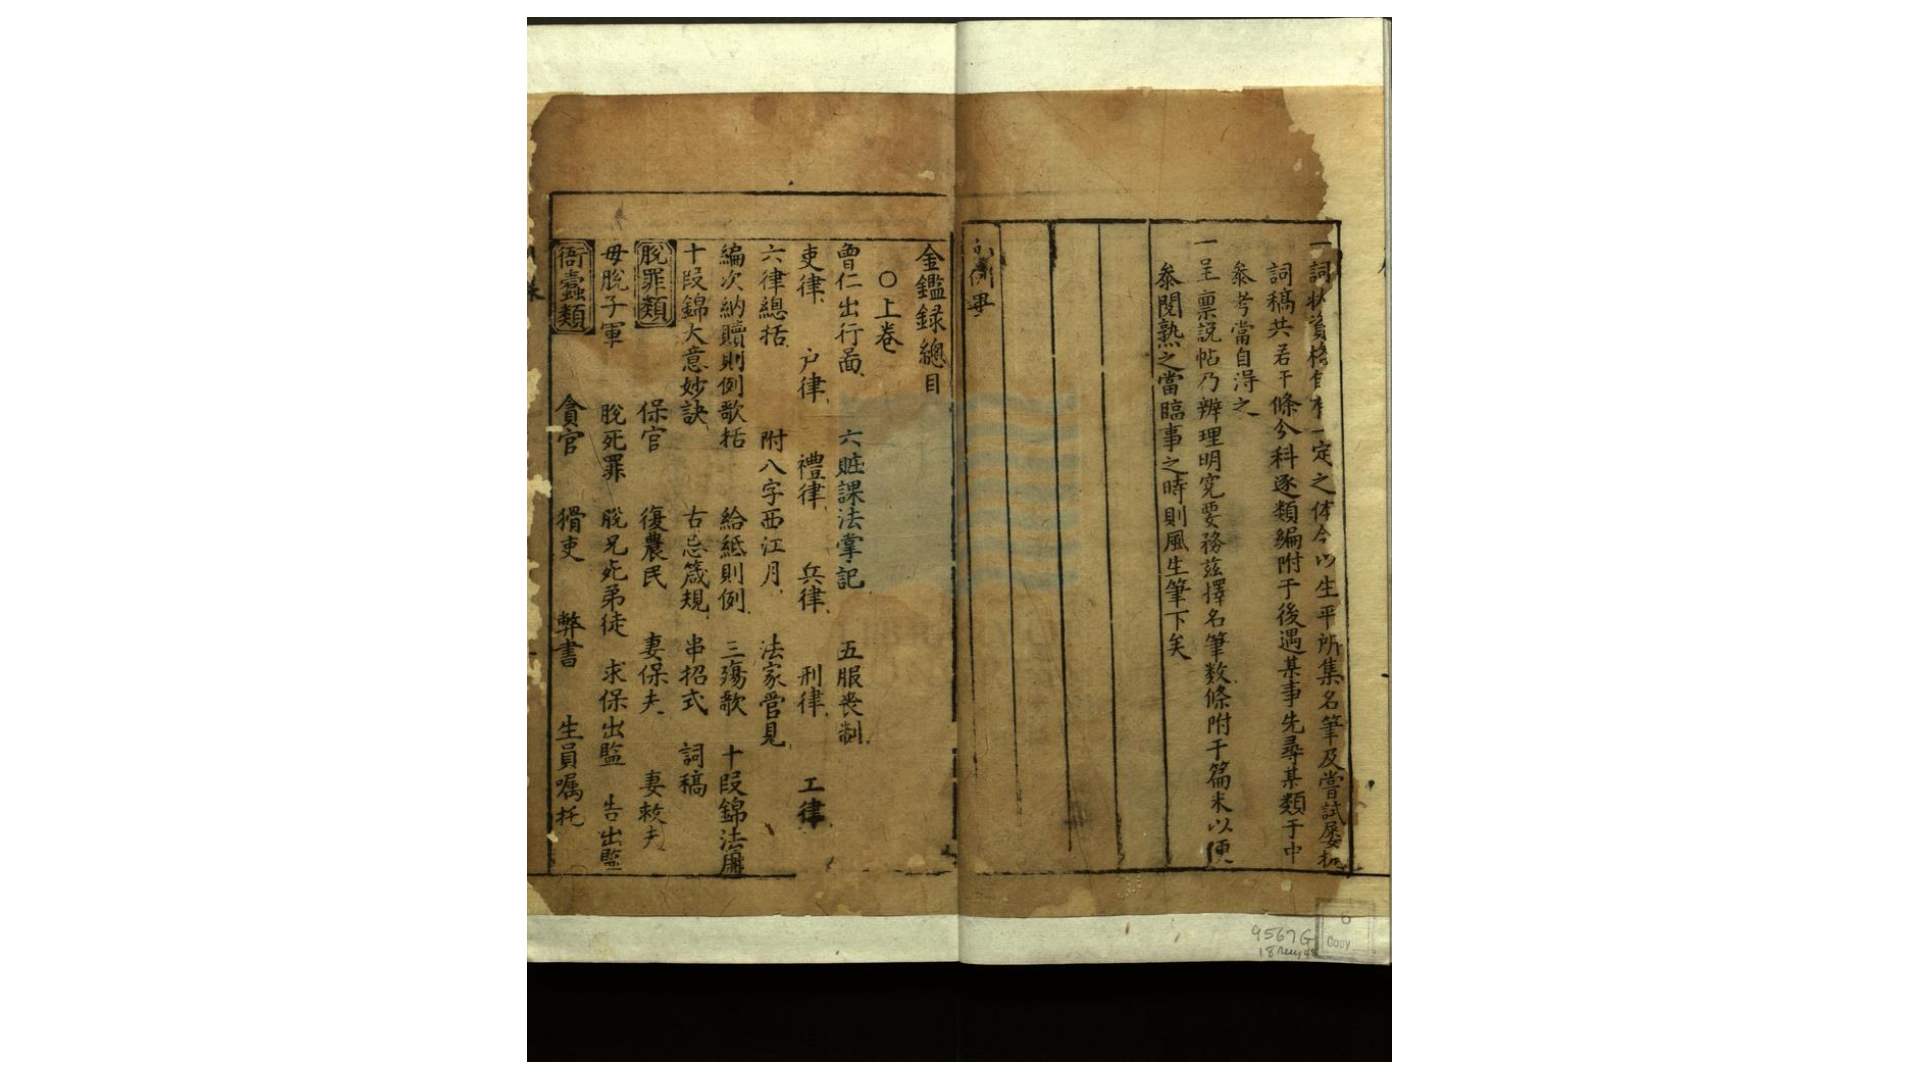 一詞狀資格自有一定之体今以生平所集名筆及嘗試屢
詞稿共若干條分科逐類編附于後遇某事先尋某類于中
叅考當自淂之
一呈禀説帖乃辨理明寃要務兹擇名筆数條附于篇末以便
叅閱熟之當臨事之時則風生筆下矣
畢
金鑑録總目
〇上卷
曾仁出行啚 六賍課法掌記 五服丧制
吏律 户律 禮律 兵律 刑律 工律
六律總括 附八字西江月 法家管見
編次納贖則例歌括 給紙則例 三殤歌 十段錦法
十段錦大意妙訣 古忌箴規 串招式 詞稿
脫罪類 保官 復農民 妻保夫 妻救夫
毋脫子軍 脫死罪 脫兄死弟徒 求保出監 告出監
衙蠹類 貪官 猾吏 弊書 生員嘱托
9567G
6
Copy